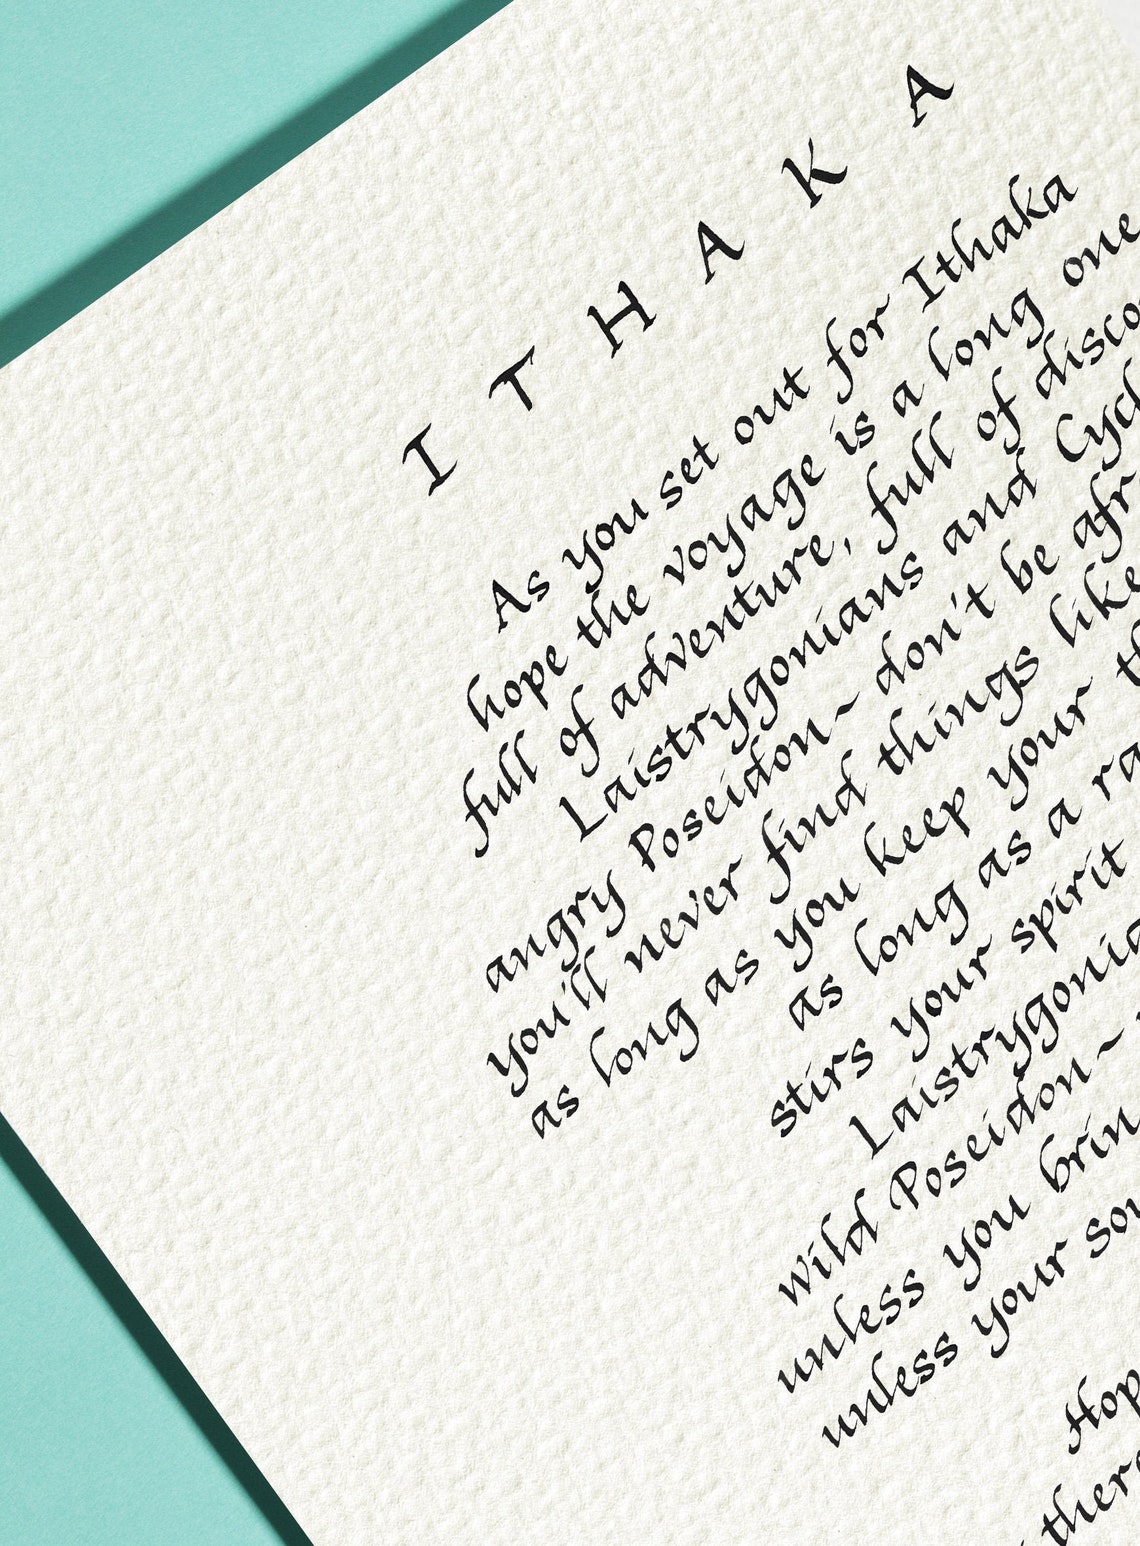 ITHAKA
As you set out for Ithaka
hope the voyage is a long one
full of adventure, full of
Laistrygonians and
angry Poseidon~ don't be
you'll never find things like
as long as you keep your
as long as a
stirs your spirit
wild Poseidon~
unless you
unless your